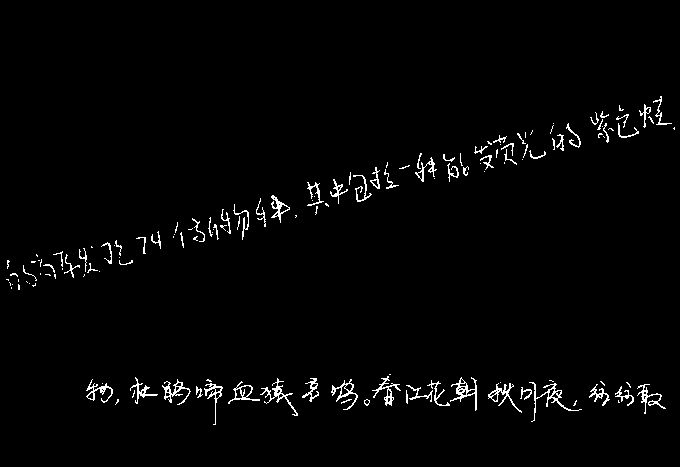 的高原发现24个新的物种,其中包括一种能发荧光的紫色蛙,
物,杜鹃啼血猿哀鸣。春江花朝秋月夜,往往取